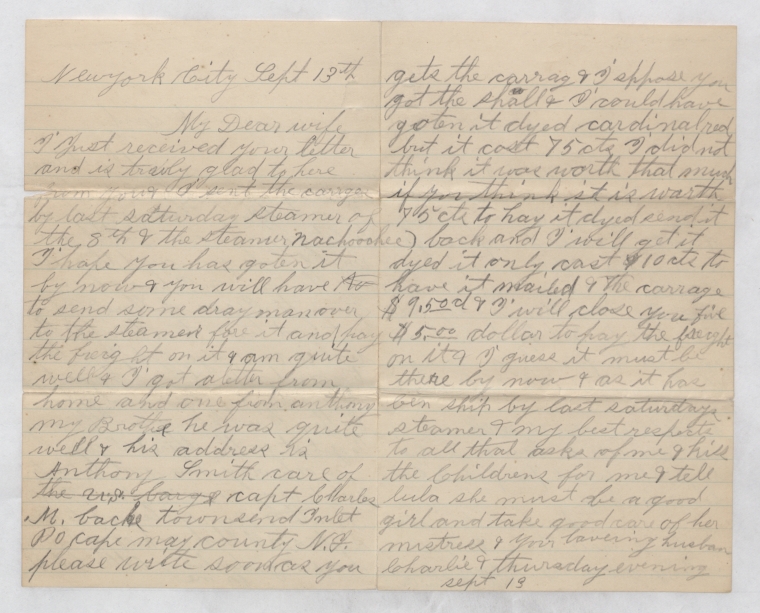 Newyork City Sept 13th
My Dear wife
I Just received your letter
and is traily glad to here
from you & I sent the carrges
by last saturday steamer of
the 8th & the steamer, nachoochee)
I hope you has goten it
by now & you will have to
to send some dray man over
to the steamer fore it and pay
the freight on it & am quite
well & I got a letter from
home and one from anthony
my Brother he was quite
well & his address is
Anthony Smith care of
the barge capt Charles
M. bache townsend Inlet
PO cape may county N.J.
please write soon as you
gets the carrag & I sppose you
got the shall & I could have
goten it dyed cardinal red
but it cost 75 cts I did not
think it was worth that much
if you think it is warth
75 cts to hay it dyed send it
back and I will get it
dyed it only cast $10 cts to
have it mailed & the carrage
$ 9.50 & I will close you five
$5.00 dollar to pay the freight
on it & I guess it must be
there by now & as it has
ben ship by last saturdays
steamer & my best respects
to all that asks of me & kiss
the Childrens for me & tell
lula she must be a good
girl and take good care of her
mistress & your laveing husban
Charlie & thursday evening
sept 13